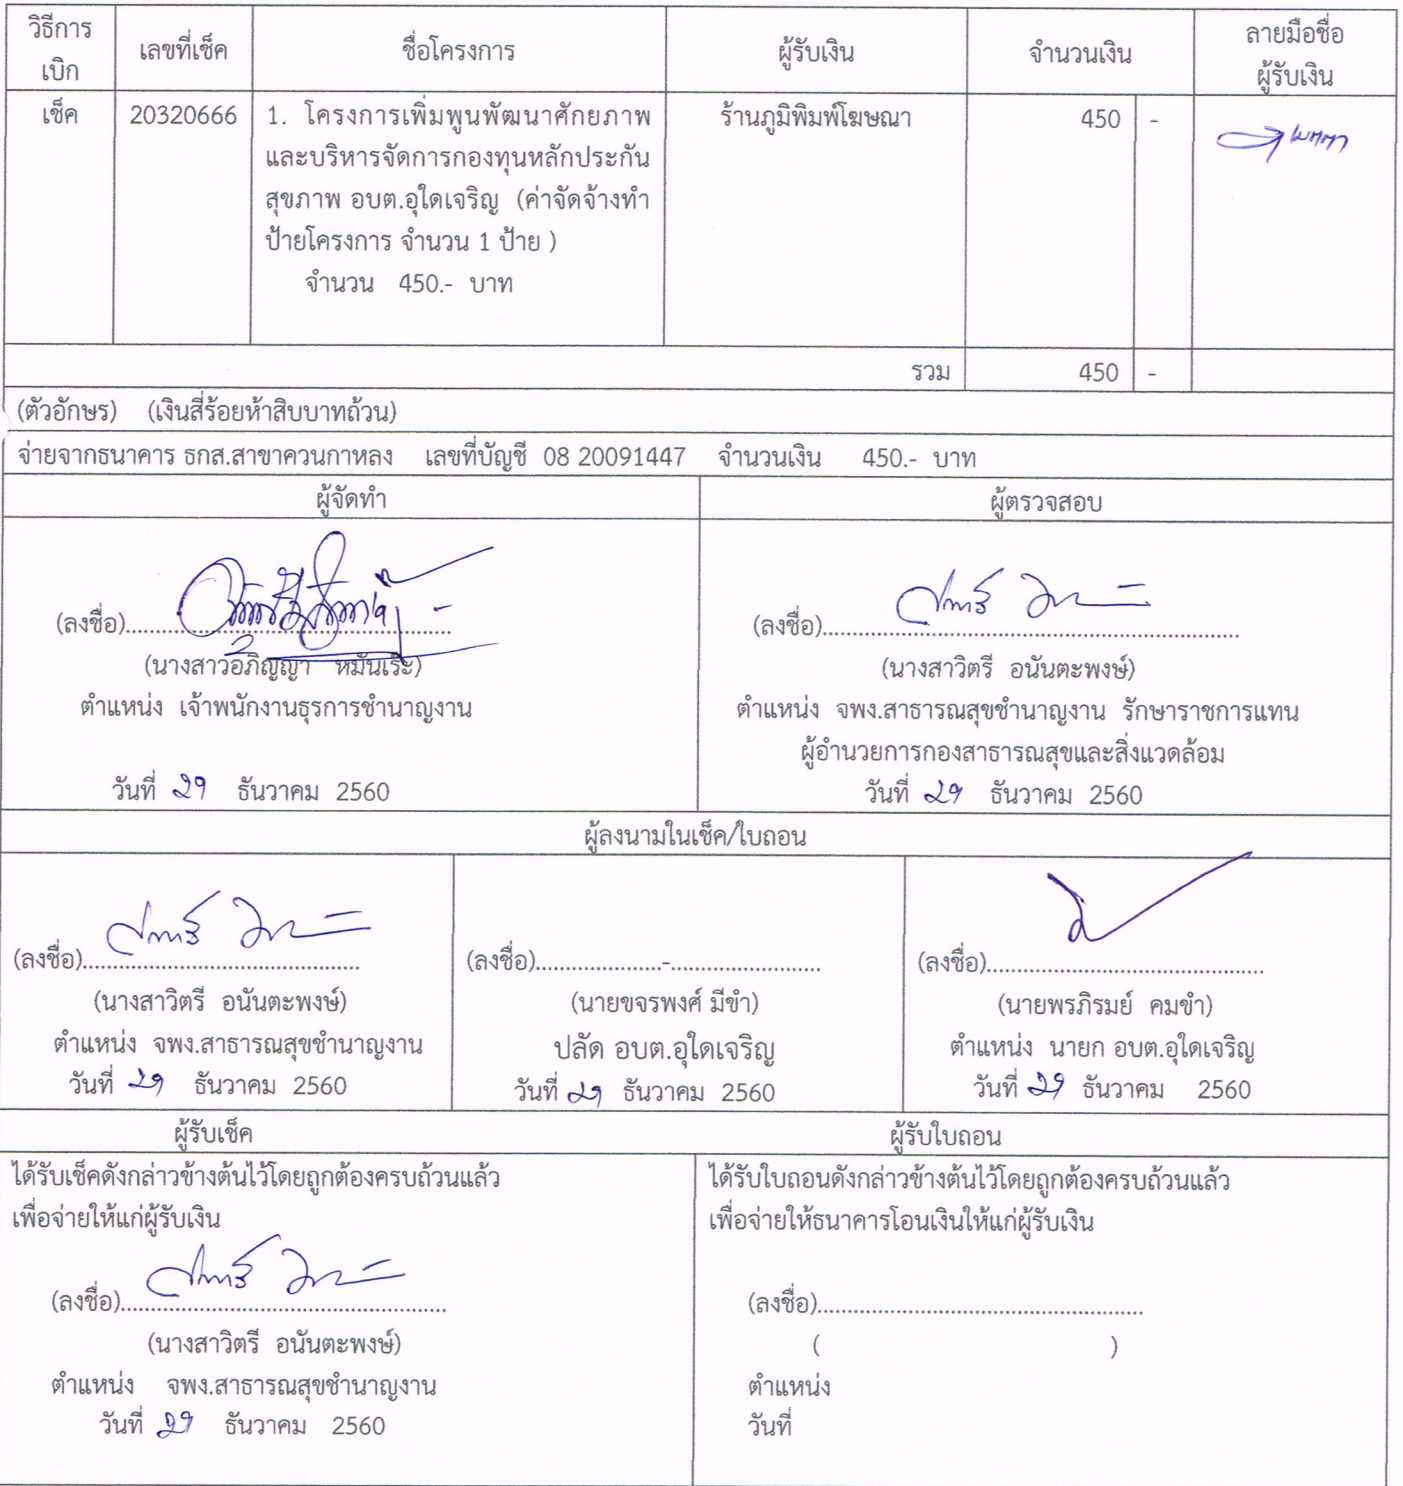 วิธีการเบิก เลขที่เช็ค ชื่อโครงการ ผู้รับเงิน จำนวนเงิน ลายมือชื่อผู้รับเงิน
เช็ค 20320666 1. โครงการเพิ่มพูนพัฒนาศักยภาพ ร้านภูมิพิมพ์โฆษณา 450 -
และบริหารจัดการกองทุนหลักประกัน
สุขภาพ อบต.อุใดเจริญ (ค่าจัดจ้างทำ
ป้ายโครงการ จำนวน 1 ป้าย )
จำนวน 450.- บาท
รวม 450 -
(ตัวอักษร) (เงินสี่ร้อยห้าสิบบาทถ้วน)
จ่ายจากธนาคาร ธกส.สาขาควนกาหลง เลขที่บัญชี 08 20091447 จำนวนเงิน 450.- บาท
ผู้จัดทำ
(ลงชื่อ)
(นางสาวอภิญญา หมันเร๊ะ)
ตำแหน่ง เจ้าพนักงานธุรการชำนาญงาน
วันที่ 29 ธันวาคม 2560
ผู้ตรวจสอบ
(ลงชื่อ)
(นางสาวิตรี อนันตะพงษ์)
ตำแหน่ง จพง.สาธารณสุขชำนาญงาน รักษาราชการแทน
ผู้อำนวยการกองสาธารณสุขและสิ่งแวดล้อม
วันที่ 29 ธันวาคม 2560
ผู้ลงนามในเช็ค/ใบถอน
(ลงชื่อ)
(นางสาวิตรี อนันตะพงษ์)
ตำแหน่ง จพง.สาธารณสุขชำนาญงาน
วันที่ 29 ธันวาคม 2560
(ลงชื่อ).....................-.........................
(นายขจรพงศ์ มีขำ)
ปลัด อบต.อุใดเจริญ
วันที่ 29 ธันวาคม 2560
(ลงชื่อ)
(นายพรภิรมย์ คมขำ)
ตำแหน่ง นายก อบต.อุใดเจริญ
วันที่ 29 ธันวาคม 2560
ผู้รับเช็ค
ได้รับเช็คดังกล่าวข้างต้นไว้โดยถูกต้องครบถ้วนแล้ว
เพื่อจ่ายให้แก่ผู้รับเงิน
(ลงชื่อ)
(นางสาวิตรี อนันตะพงษ์)
ตำแหน่ง จพง.สาธารณสุขชำนาญงาน
วันที่ 29 ธันวาคม 2560
ผู้รับใบถอน
ได้รับใบถอนดังกล่าวข้างต้นไว้โดยถูกต้องครบถ้วนแล้ว
เพื่อจ่ายให้ธนาคารโอนเงินให้แก่ผู้รับเงิน
(ลงชื่อ)
( )
ตำแหน่ง
วันที่